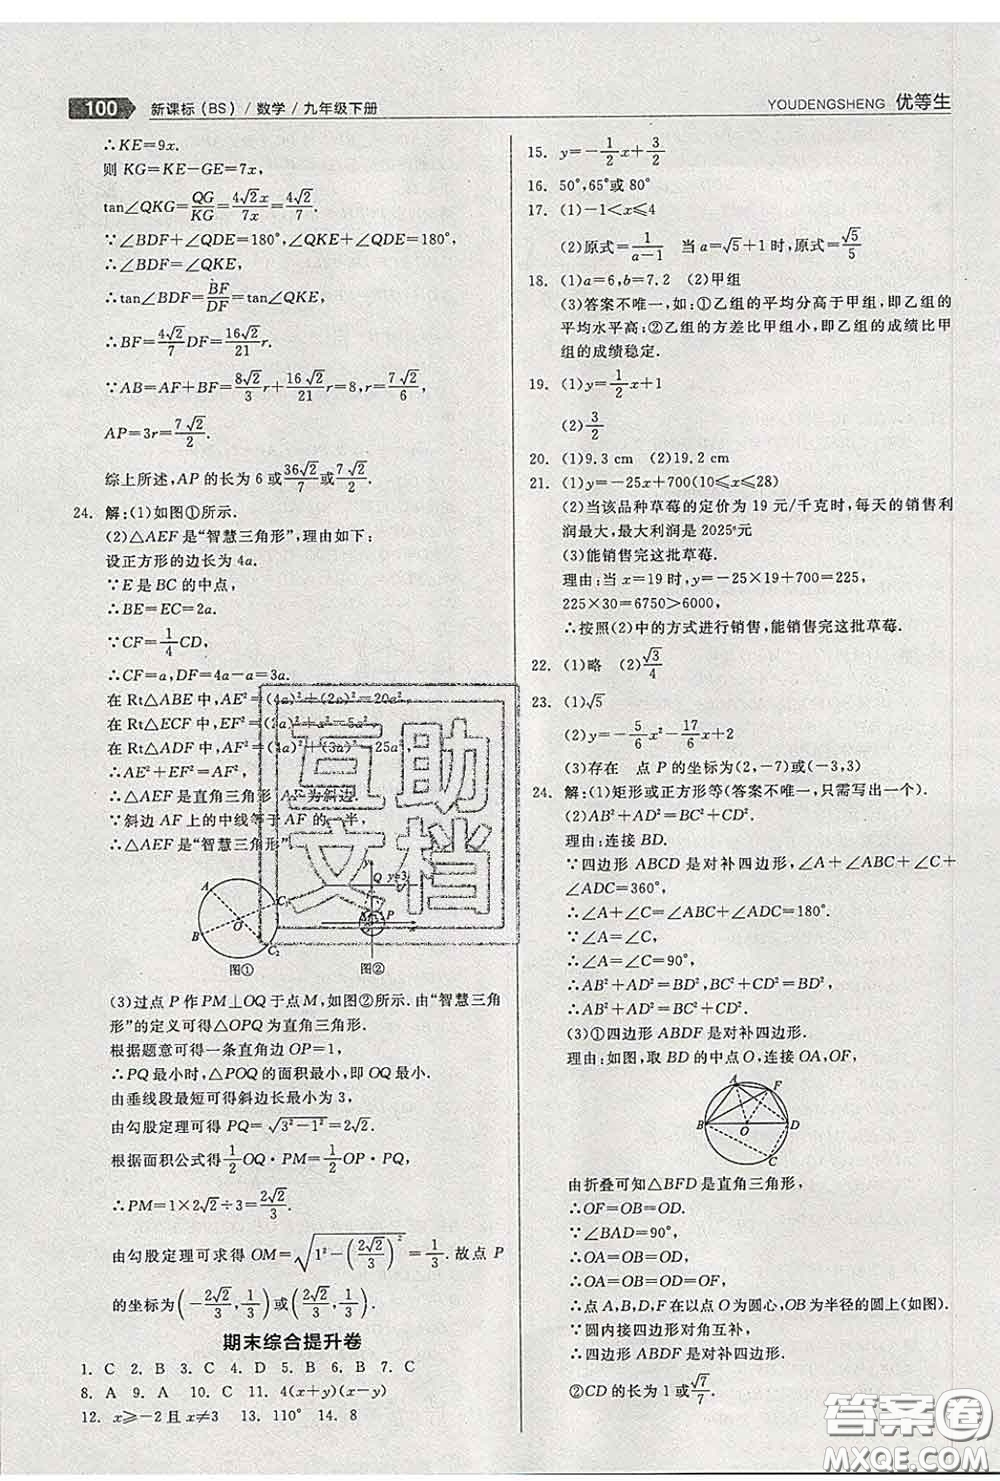 100 新课标(BS)/数学/九年级下册
YOUDENGSHENG 优等生
∴KE=9x.
则 KG=KE−GE=7x,
tan∠QKG=QG/KG=4√2x/7x=4√2/7.
∵∠BDF+∠QDE=180°,∠QKE+∠QDE=180°,
∴∠BDF=∠QKE,
∴tan∠BDF=BF/DF=tan∠QKE,
∴BF=4√2/7DF=16√2/21r.
∵AB=AF+BF=8√2/3r+16√2/21r=8,r=7√2/6,
AP=3r=7√2/2.
综上所述,AP 的长为 6 或36√2/7或7√2/2.
24. 解:(1)如图①所示.
(2)△AEF 是“智慧三角形”,理由如下:
设正方形的边长为 4a.
∵E 是 BC 的中点,
∴BE=EC=2a.
∵CF=1/4CD,
∴CF=a,DF=4a−a=3a.
在 Rt△ABE 中,AE²=(4a)²+(2a)²=20a².
在 Rt△ECF 中,EF²=(2a)²+a²=5a².
在 Rt△ADF 中,AF²=(4a)²+(3a)²=25a².
∴AE²+EF²=AF²,
∴△AEF 是直角三角形,AF 为斜边.
∵斜边 AF 上的中线等于 AF 的一半,
∴△AEF 是“智慧三角形”.
A B O C₁ C₂
图①
Q y=3 P x
图②
(3)过点 P 作 PM⊥OQ 于点 M,如图②所示.由“智慧三角
形”的定义可得△OPQ 为直角三角形.
根据题意可得一条直角边 OP=1,
∴PQ 最小时,△POQ 的面积最小,即 OQ 最小.
由垂线段最短可得斜边长最小为 3,
由勾股定理可得 PQ=√3²−1²=2√2.
根据面积公式得1/2OQ·PM=1/2OP·PQ,
∴PM=1×2√2÷3=2√2/3.
由勾股定理可求得 OM=√1²−(2√2/3)²=1/3.故点 P
的坐标为(−2√2/3,1/3)或(2√2/3,1/3).
期末综合提升卷
1. C 2. B 3. C 4. D 5. B 6. B 7. C
8. A 9. A 10. C 11. 4(x+y)(x−y)
12. x≥−2 且 x≠3 13. 110° 14. 8
15. y=−1/2x+3/2
16. 50°,65°或 80°
17. (1)−1<x≤4
(2)原式=1/a−1 当 a=√5+1 时,原式=√5/5
18. (1)a=6,b=7.2 (2)甲组
(3)答案不唯一,如:①乙组的平均分高于甲组,即乙组的
平均水平高;②乙组的方差比甲组小,即乙组的成绩比甲
组的成绩稳定.
19. (1)y=1/2x+1
(2)3/2
20. (1)9.3 cm (2)19.2 cm
21. (1)y=−25x+700(10≤x≤28)
(2)当该品种草莓的定价为 19 元/千克时,每天的销售利
润最大,最大利润是 2025 元
(3)能销售完这批草莓.
理由:当 x=19 时,y=−25×19+700=225,
225×30=6750>6000,
∴按照(2)中的方式进行销售,能销售完这批草莓.
22. (1)略 (2)√3/4
23. (1)√5
(2)y=−5/6x²−17/6x+2
(3)存在 点 P 的坐标为(2,−7)或(−3,3)
24. 解:(1)矩形或正方形等(答案不唯一,只需写出一个).
(2)AB²+AD²=BC²+CD².
理由:连接 BD.
∵四边形 ABCD 是对补四边形,∠A+∠ABC+∠C+
∠ADC=360°,
∴∠A+∠C=∠ABC+∠ADC=180°.
∵∠A=90°,
∴∠A=∠C=90°,
∴AB²+AD²=BD²,BC²+CD²=BD²,
∴AB²+AD²=BC²+CD².
(3)①四边形 ABDF 是对补四边形.
理由:如图,取 BD 的中点 O,连接 OA,OF,
A F B O D C
由折叠可知△BFD 是直角三角形,
∴OF=OB=OD.
∵∠BAD=90°,
∴OA=OB=OD,
∴OA=OB=OD=OF,
∴点 A,B,D,F 在以点 O 为圆心,OB 为半径的圆上(如图).
∵圆内接四边形对角互补,
∴四边形 ABDF 是对补四边形.
②CD 的长为 1 或√7/7.
互助
文档
答案圈
MXQE.COM